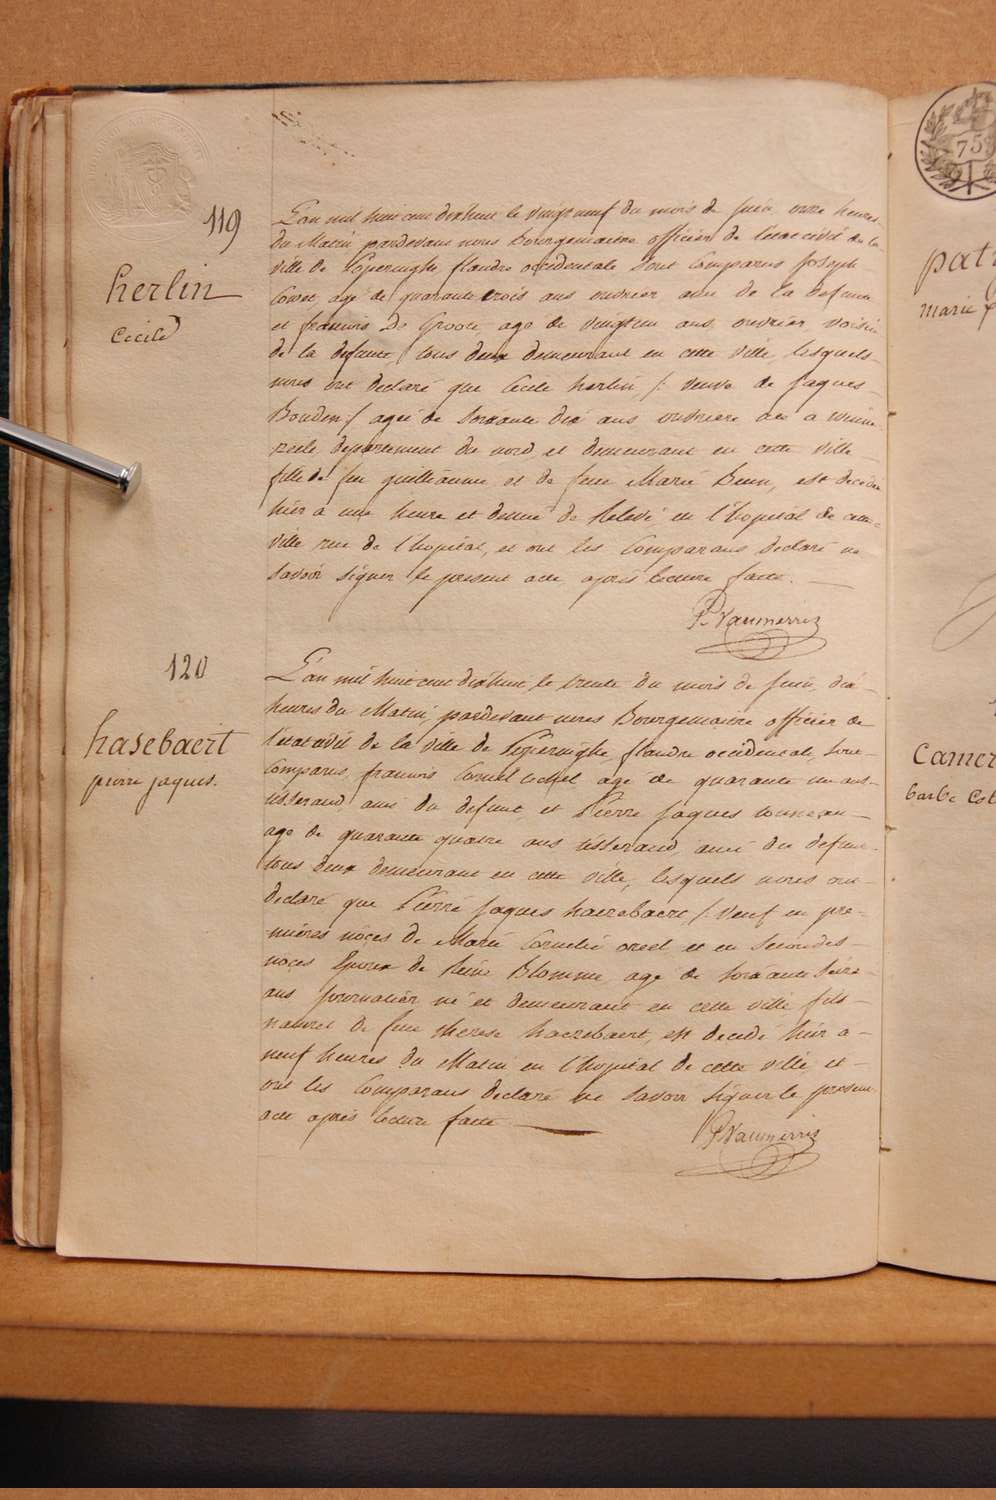 119
herlin
Cecile
L'an mil huit cent dixhuit le vingt neuf du mois de Juin, onze heures
du Matin pardevant nous Bourgemaitre officier de l'etat civil de la
ville de Poperinghe flandre occidentale sont Comparus Joseph
agé de quarante trois ans ouvrier ami de la defunte
et francois De Groote, agé de vingt un ans, ouvrier, voisin
de la defunte, tous deux demeurant en cette ville, lesquels
nous ont declaré que Cecile herlin, /: veuve de Jaques
Bouden :/ agée de soixante dix ans ouvriere née a
departement du nord, et demeurant en cette ville
fille de feu guilleaume, et de feue Marie est decedée
hier a une heure et demie de Relevé, en l'hopital de cette
ville rue de l'hopital, et ont les Comparans declaré ne
savoir signer le present acte, après lecture faite.
P. Vanmerris
120
hasebaert
pierre jaques.
L'an mil huit cent dixhuit le trente du mois de Juin, dix
heures du Matin, pardevant nous Bourgemaitre officier de
l'etat civil de la ville de Poperinghe flandre occidental, sont
Comparus, francois agé de quarante un ans
tisserand ami du defunt, et Pierre Jaques
agé de quarante quatre ans tisserand, ami du defunt
tous deux demeurant en cette ville, lesquels nous ont
declaré que Pierre Jaques haezebaert /: veuf en pre-
mières nôces de Marie Cornelie et en secondes
noces Epoux de Reine Blomme, agé de soixante seize
ans journalier né et demeurant en cette ville fils
naturel de feue therese haezebaert, est decedé hier a
neuf heures du Matin en l'hopital de cette ville, et
ont les Comparans declaré ne savoir signer le present
acte après lecture faite
P. Vanmerris
75
marie
barbe